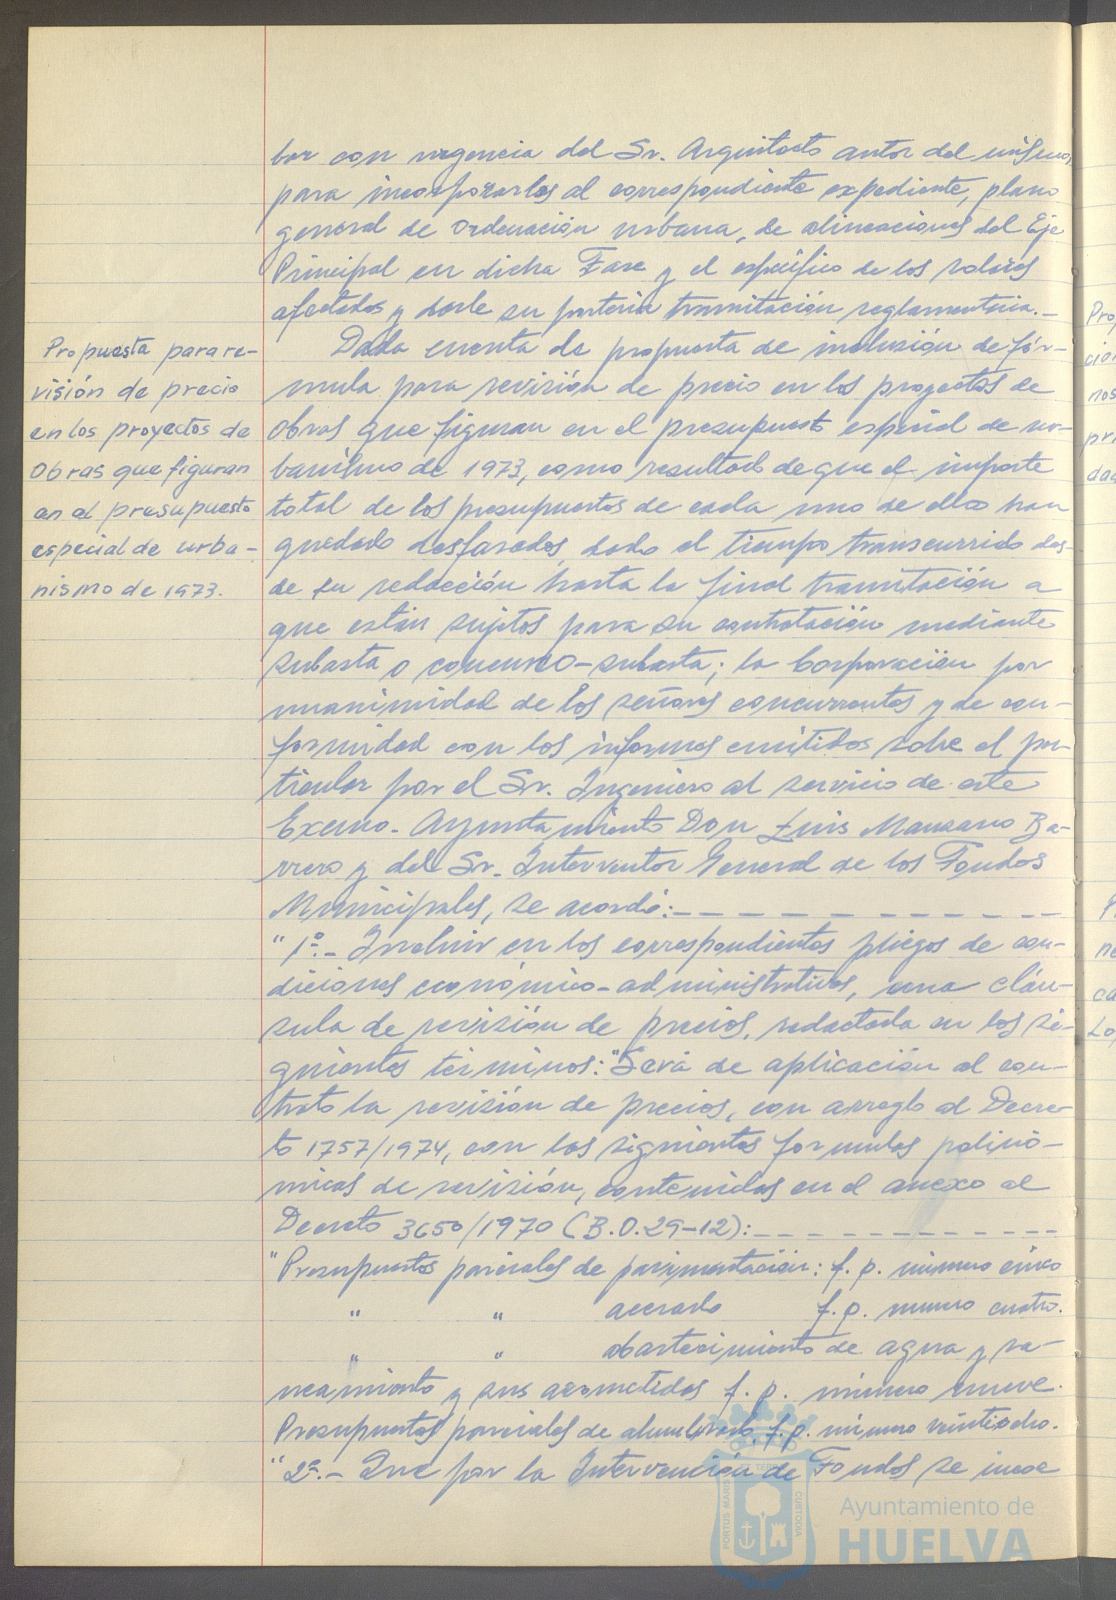 bar con urgencia del Sr. Arquitecto autor del mismo,
para incorporarlos al correspondiente expediente, plano
general de ordenación urbana, de alineaciones del Eje
Principal en dicha Fase y el específico de los solares
afectados y darle su posterior tramitación reglamentaria.-
Propuesta para re-
visión de precio
en los proyectos de
Obras que figuran
en el presupuesto
especial de urba-
nismo de 1973.
Dada cuenta de propuesta de inclusión de fór-
mula para revisión de precio en los proyectos de
Obras que figuran en el presupuesto especial de ur-
banismo de 1973, como resultado de que el importe
total de los presupuestos de cada uno de ellos han
quedado desfasados, dado el tiempo transcurrido des-
de su redacción hasta la final tramitación a
que están sujetos para su contratación mediante
subasta o concurso-subasta; la Corporación por
unanimidad de los señores concurrentes y de con-
formidad con los informes emitidos sobre el par-
ticular por el Sr. Ingeniero al servicio de este
Excmo. Ayuntamiento Don Luis Manzano Ba-
rrero y del Sr. Interventor General de los Fondos
Municipales, se acordó:- - - - - - - - - - -
"1º.- Incluir en los correspondientes pliegos de con-
diciones económico-administrativas, una cláu-
sula de revisión de precios, redactada en los si-
guientes términos: "Será de aplicación al con-
trato la revisión de precios, con arreglo al Decre-
to 1757/1974, con las siguientes formulas polinó-
micas de revisión, contenidas en el anexo al
Decreto 3650/1970 (B.O.29-12):- - - - - - - - - -
"Presupuestos parciales de pavimentación: f. p. número cinco
" " acerado f. p. numero cuatro.
" " abastecimiento de agua y sa-
neamiento y sus acometidas f. p. número nueve.
Presupuestos parciales de alumbrado, f. p. número veintiocho.
"2º.- Que por la Intervención de Fondos se incoe
PORTUS MARIS ET TERRAE CUSTODIA
Ayuntamiento de
HUELVA